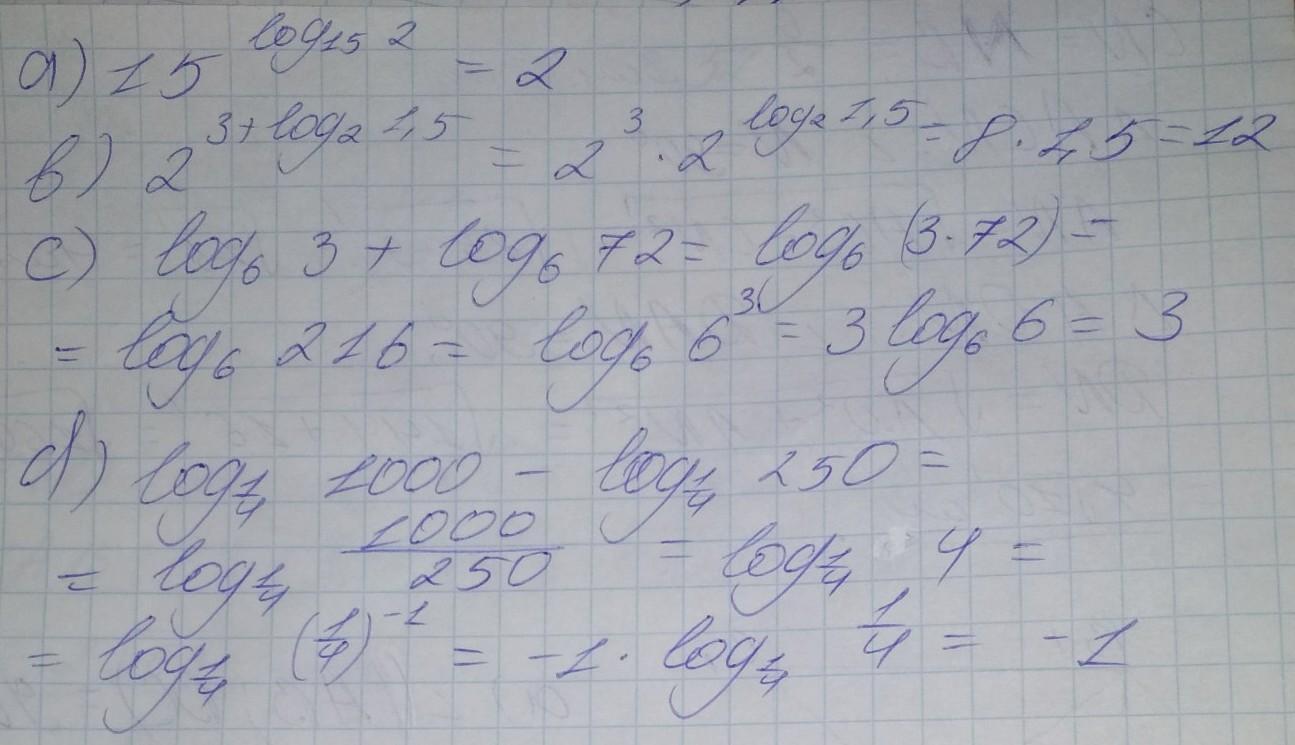 a) 15^{log_{15} 2} = 2
b) 2^{3+log_2 1,5} = 2^3 · 2^{log_2 1,5} = 8 · 1,5 = 12
c) log_6 3 + log_6 72 = log_6 (3·72) =
= log_6 216 = log_6 6^3 = 3 log_6 6 = 3
d) log_{1/4} 1000 - log_{1/4} 250 =
= log_{1/4} \frac{1000}{250} = log_{1/4} 4 =
= log_{1/4} (1/4)^{-1} = -1 · log_{1/4} 1/4 = -1